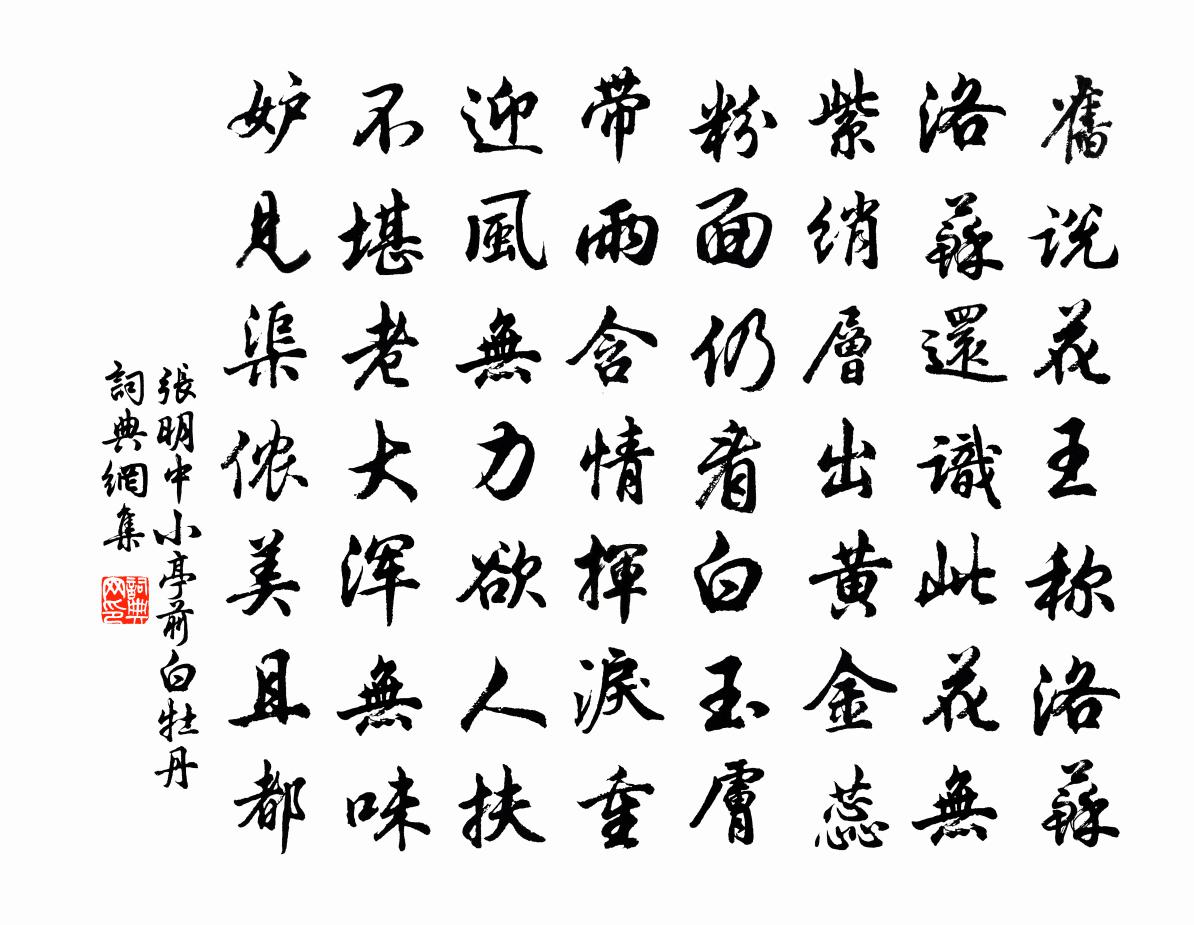 舊说花王称洛蘇
洛蘇還識此花無
紫绡層出黄金蕊
粉面仍看白玉膚
带雨含情揮淚重
迎風無力欲人扶
不堪老大浑無味
妒見渠侬美且都
張明中小亭前白牡丹
詞典網集
詞典网印